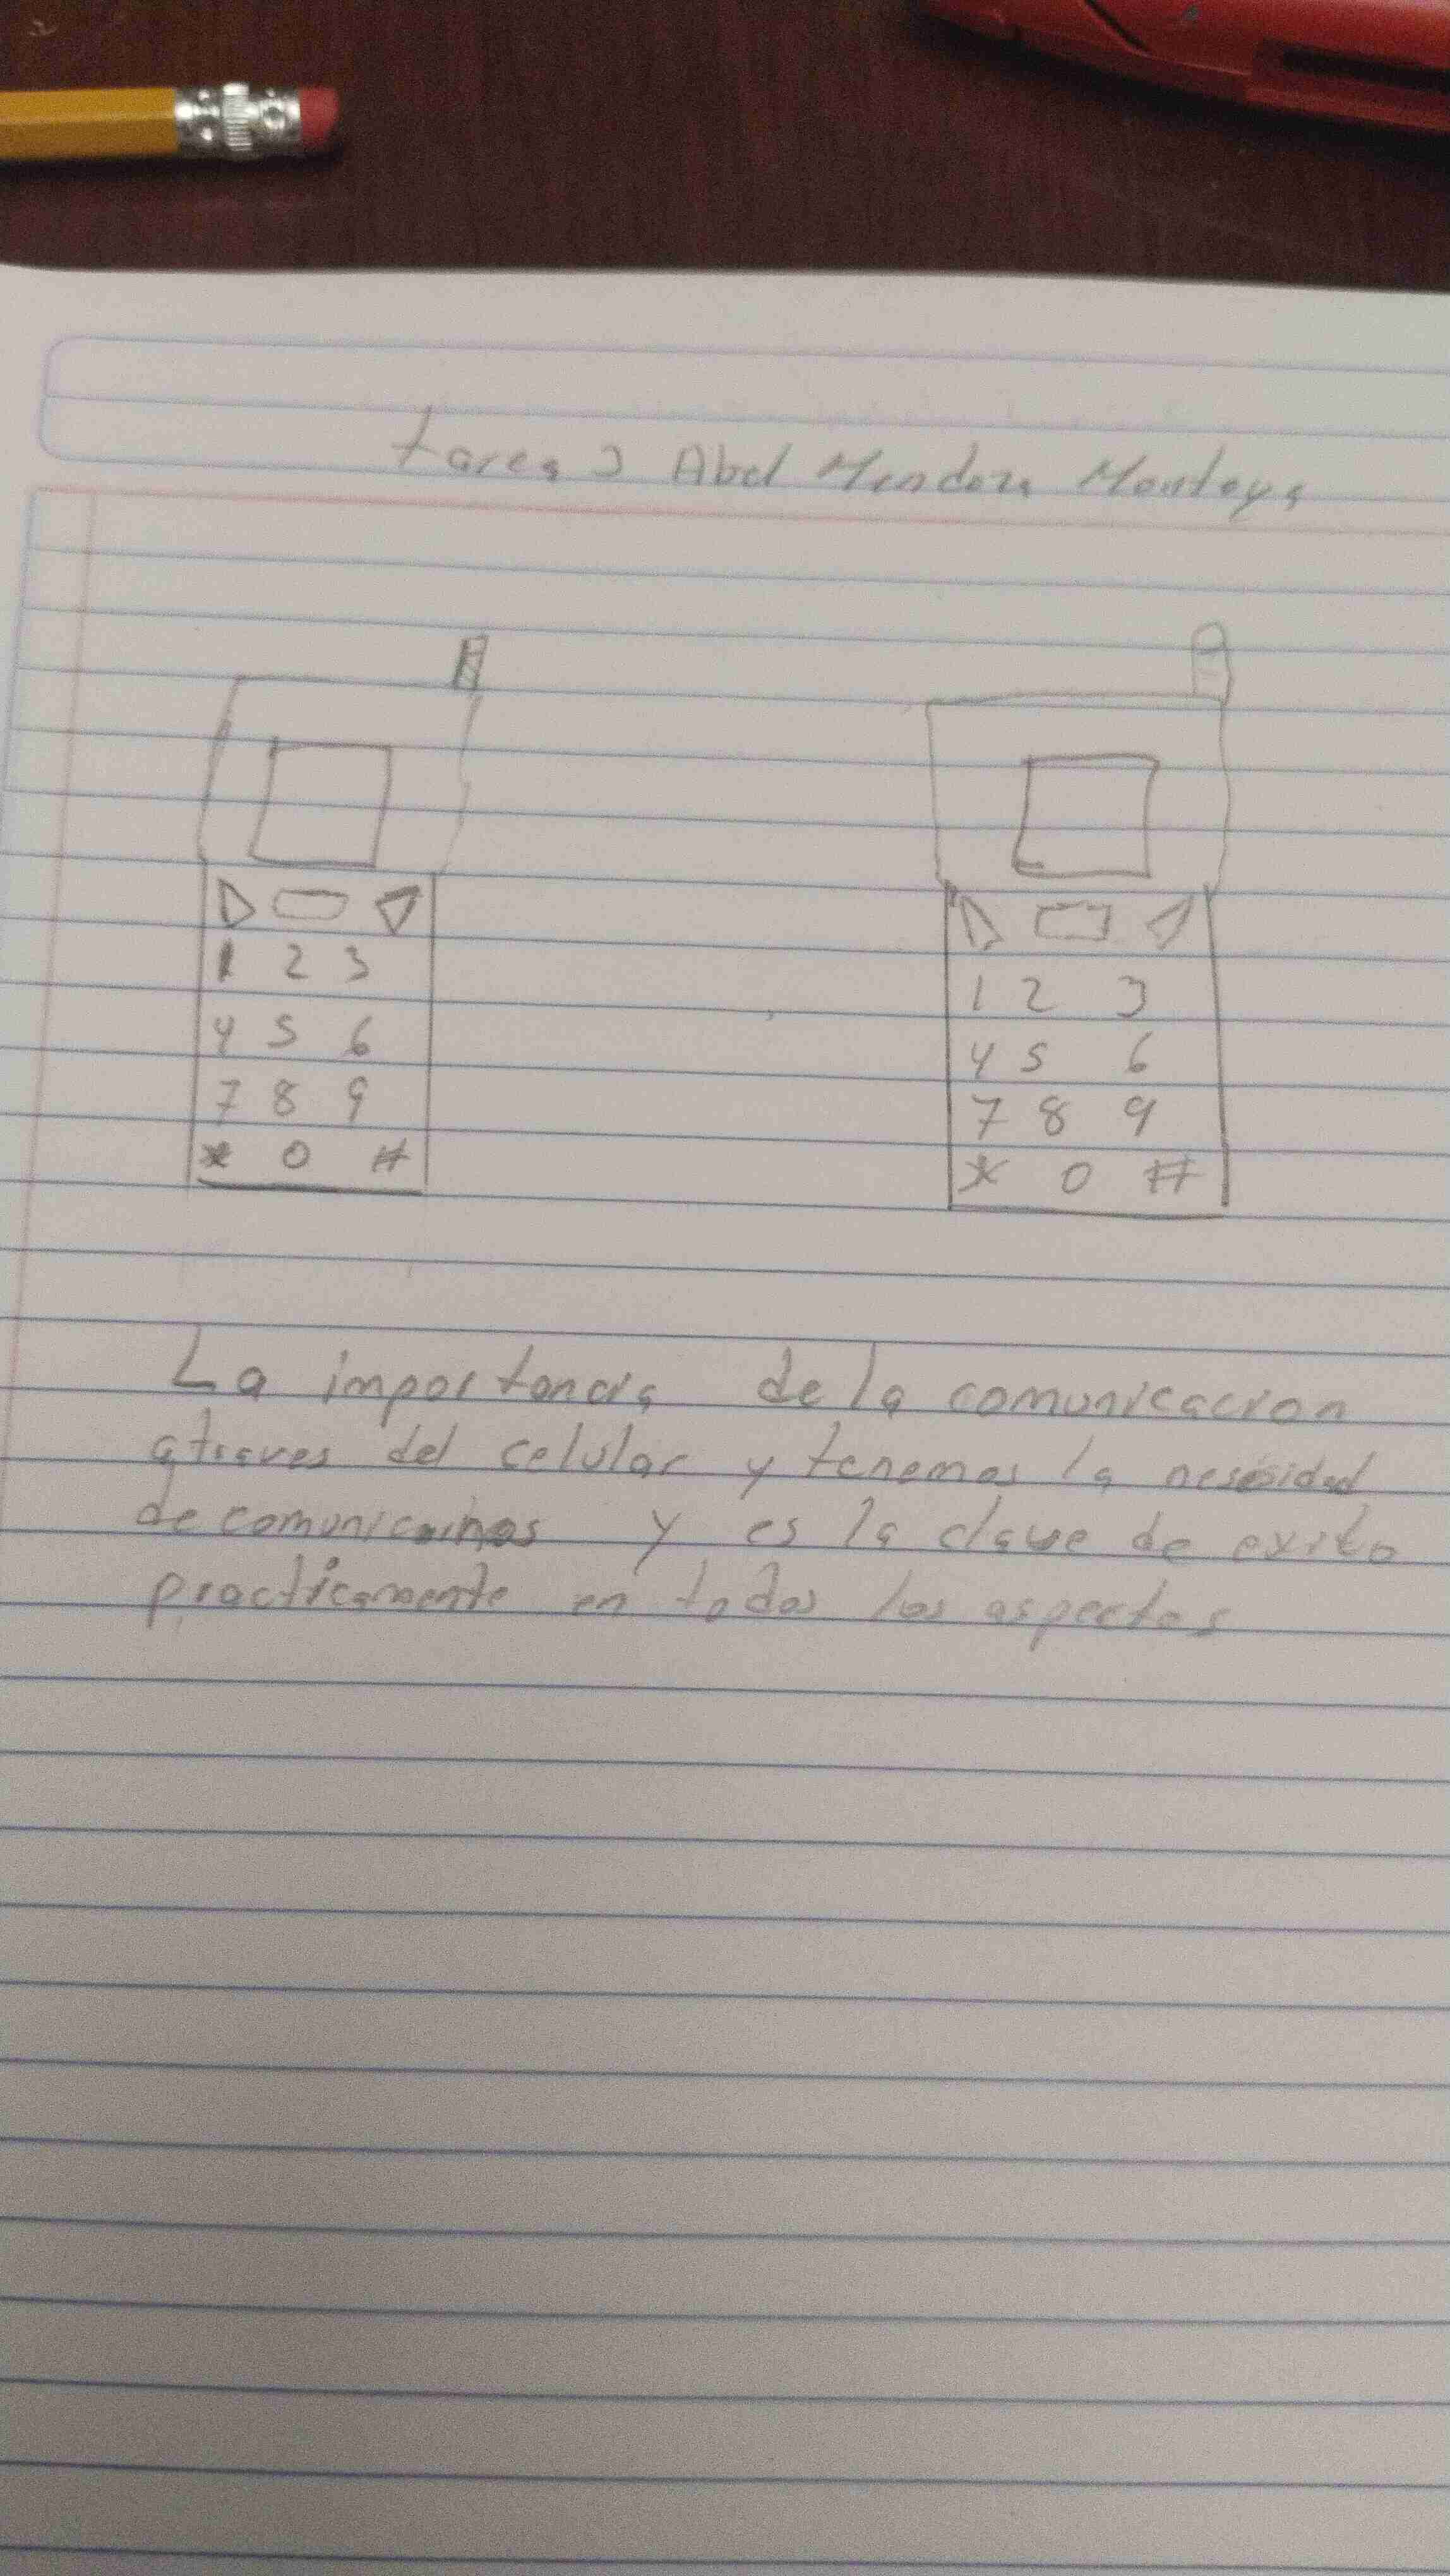 tarea 3 Abel Mendoza Montoya
1 2 3
4 5 6
7 8 9
* 0 #
1 2 3
4 5 6
7 8 9
* 0 #
La importancia de la comunicacion
atraves del celular y tenemos la
de y es la clave de exito
practicamente en todos los aspectos